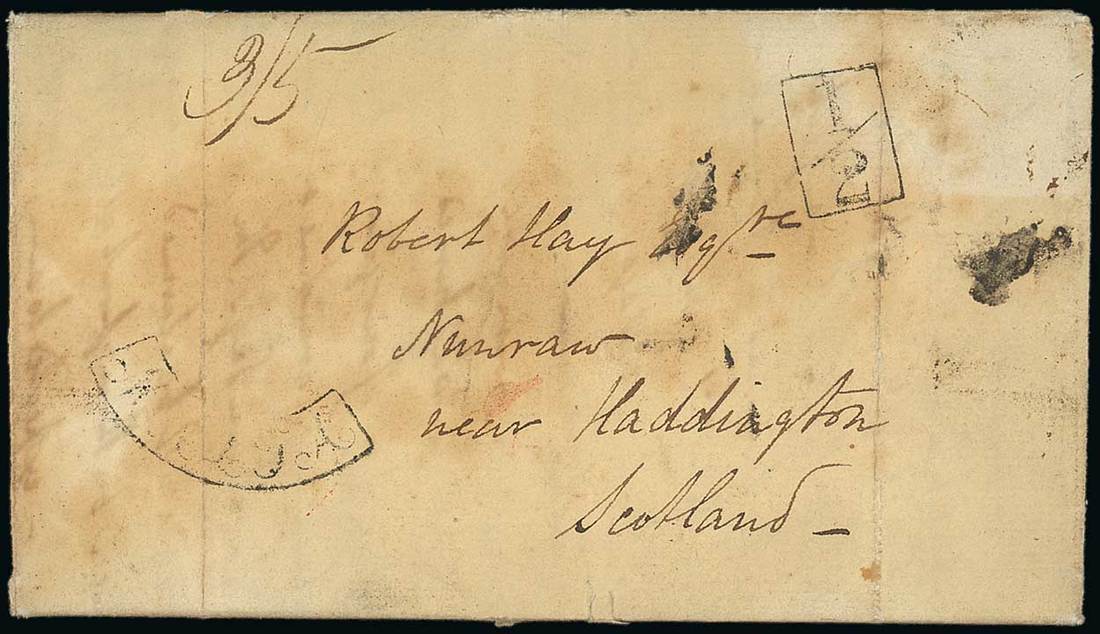 3/5
1/2
Robert Hay Esqre
Nunraw
near Haddington
Scotland
MALTA